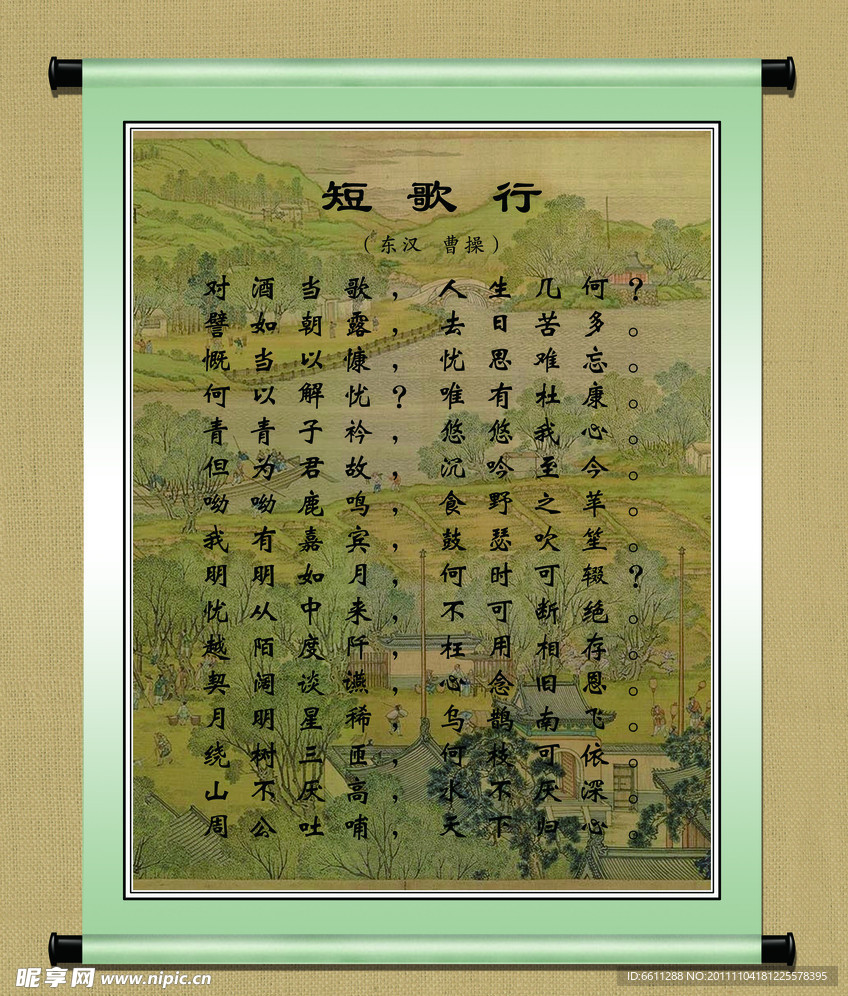 短歌行
（东汉 曹操）
对酒当歌，人生几何？
譬如朝露，去日苦多。
慨当以慷，忧思难忘。
何以解忧？唯有杜康。
青青子衿，悠悠我心。
但为君故，沉吟至今。
呦呦鹿鸣，食野之苹。
我有嘉宾，鼓瑟吹笙。
明明如月，何时可辍？
忧从中来，不可断绝。
越陌度阡，枉用相存。
契阔谈讌，心念旧恩。
月明星稀，乌鹊南飞。
绕树三匝，何枝可依。
山不厌高，水不厌深。
周公吐哺，天下归心。
昵享网 www.nipic.cn
ID:6611288 NO:20111104181225578395